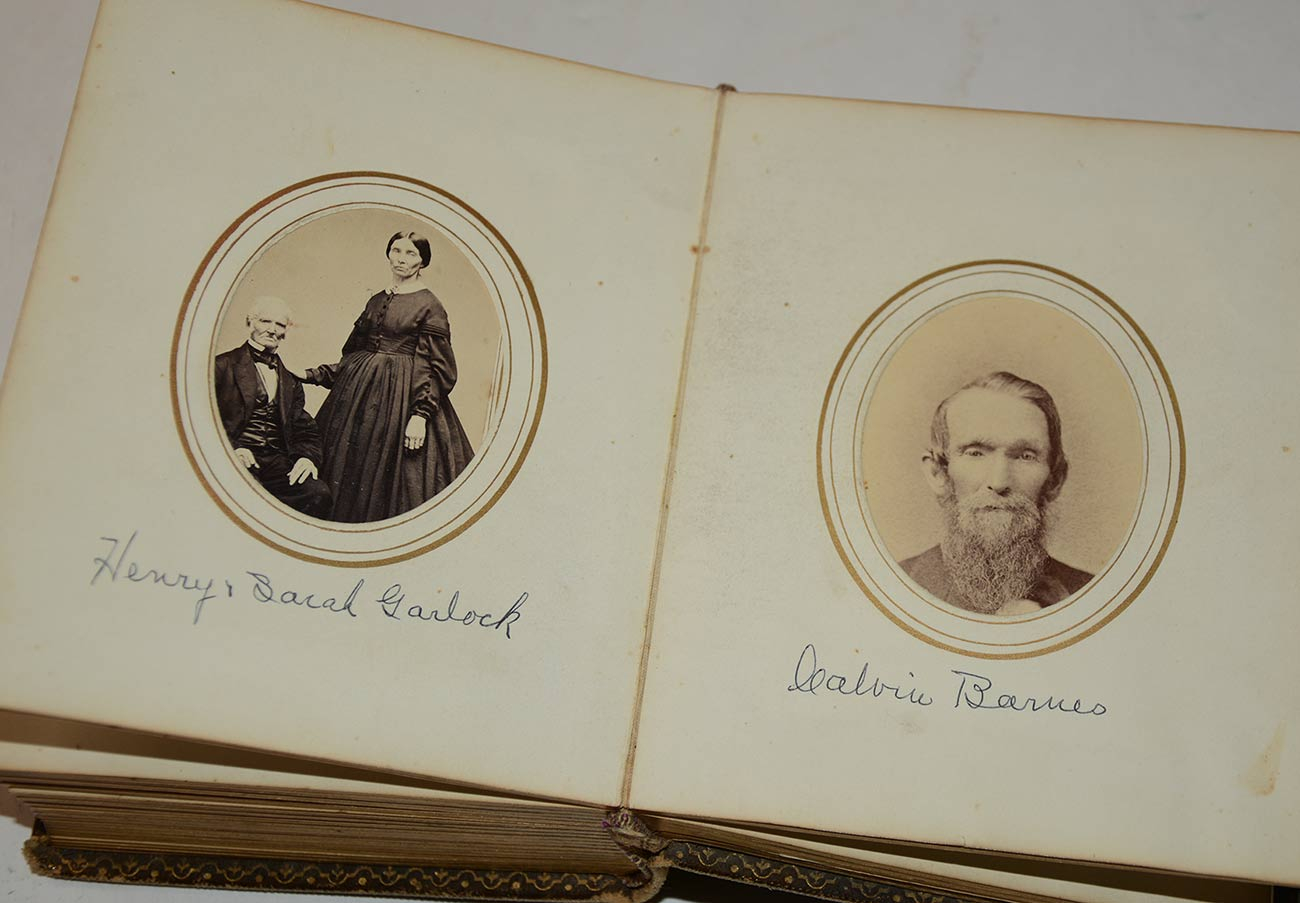 Henry & Sarah Garlock
Calvin Barnes